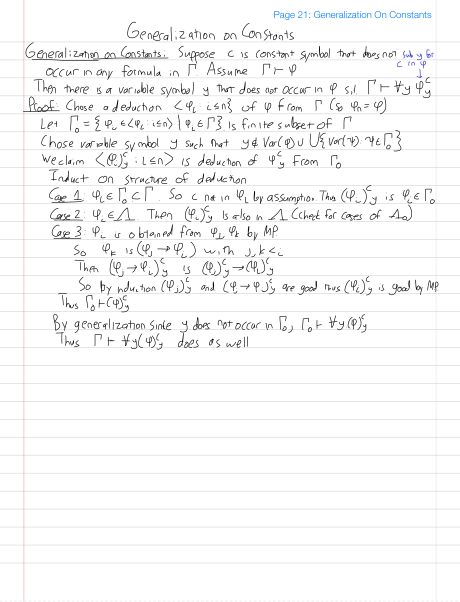 Page 21: Generalization On Constants
Generalization on Constants
Generalization on Constants: Suppose c is constant symbol that does not
sub y for c in φ
occur in any formula in Γ Assume Γ ⊢ φ
Then there is a variable symbol y that does not occur in φ s.t. Γ ⊢ ∀y φ^c_y
Proof: Chose a deduction <φ_i : i≤n> of φ from Γ (so φ_n = φ)
Let Γ_0 = {φ_i ∈ <φ_i : i≤n> | φ_i ∈ Γ} is finite subset of Γ
Chose variable symbol y such that y ∉ Var(φ) ∪ ⋃{Var(ψ): ψ ∈ Γ_0}
We claim <(φ_i)^c_y : i≤n> is deduction of φ^c_y from Γ_0
Induct on structure of deduction
Case 1: φ_i ∈ Γ_0 ⊂ Γ. So c not in φ_i by assumption. Thus (φ_i)^c_y is φ_i ∈ Γ_0
Case 2: φ_i ∈ Λ. Then (φ_i)^c_y is also in Λ (check for cases of Λ_0)
Case 3: φ_i is obtained from φ_j, φ_k by MP
So φ_k is (φ_j → φ_i) with j, k < i
Then (φ_j → φ_i)^c_y is (φ_j)^c_y → (φ_i)^c_y
So by induction (φ_j)^c_y and (φ_j → φ_i)^c_y are good thus (φ_i)^c_y is good by MP
Thus Γ_0 ⊢ (φ)^c_y
By generalization since y does not occur in Γ_0, Γ_0 ⊢ ∀y (φ)^c_y
Thus Γ ⊢ ∀y (φ)^c_y does as well